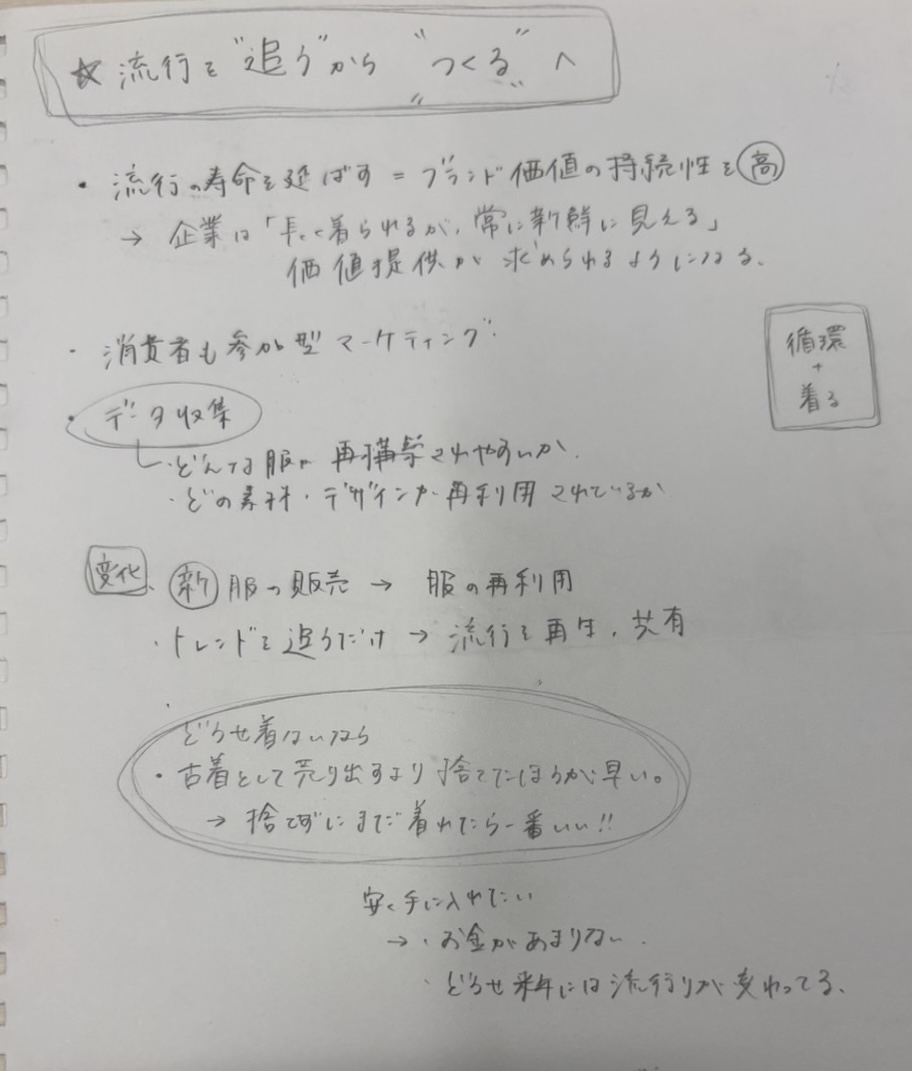 ☆ 流行を"追う"から "つくる" へ
・流行の寿命を延ばす = ブランド価値の持続性を高
→ 企業は「長く着られるが、常に新鮮に見える」
価値提供が求められるようになる。
・消費者も参加型マーケティング
・データ収集
・どんな服が再構築されやすいか
・どの素材・デザインが再利用されているか
循環
+
着る
変化 ・新服の販売 → 服の再利用
・トレンドを追うだけ → 流行を再生、共有
どうせ着ないなら
・古着として売り出すより捨てたほうが早い。
→ 捨てずにまだ着れたら一番いい!!
安く手に入れたい
→ ・お金があまりない
・どうせ来年には流行りが変わってる、